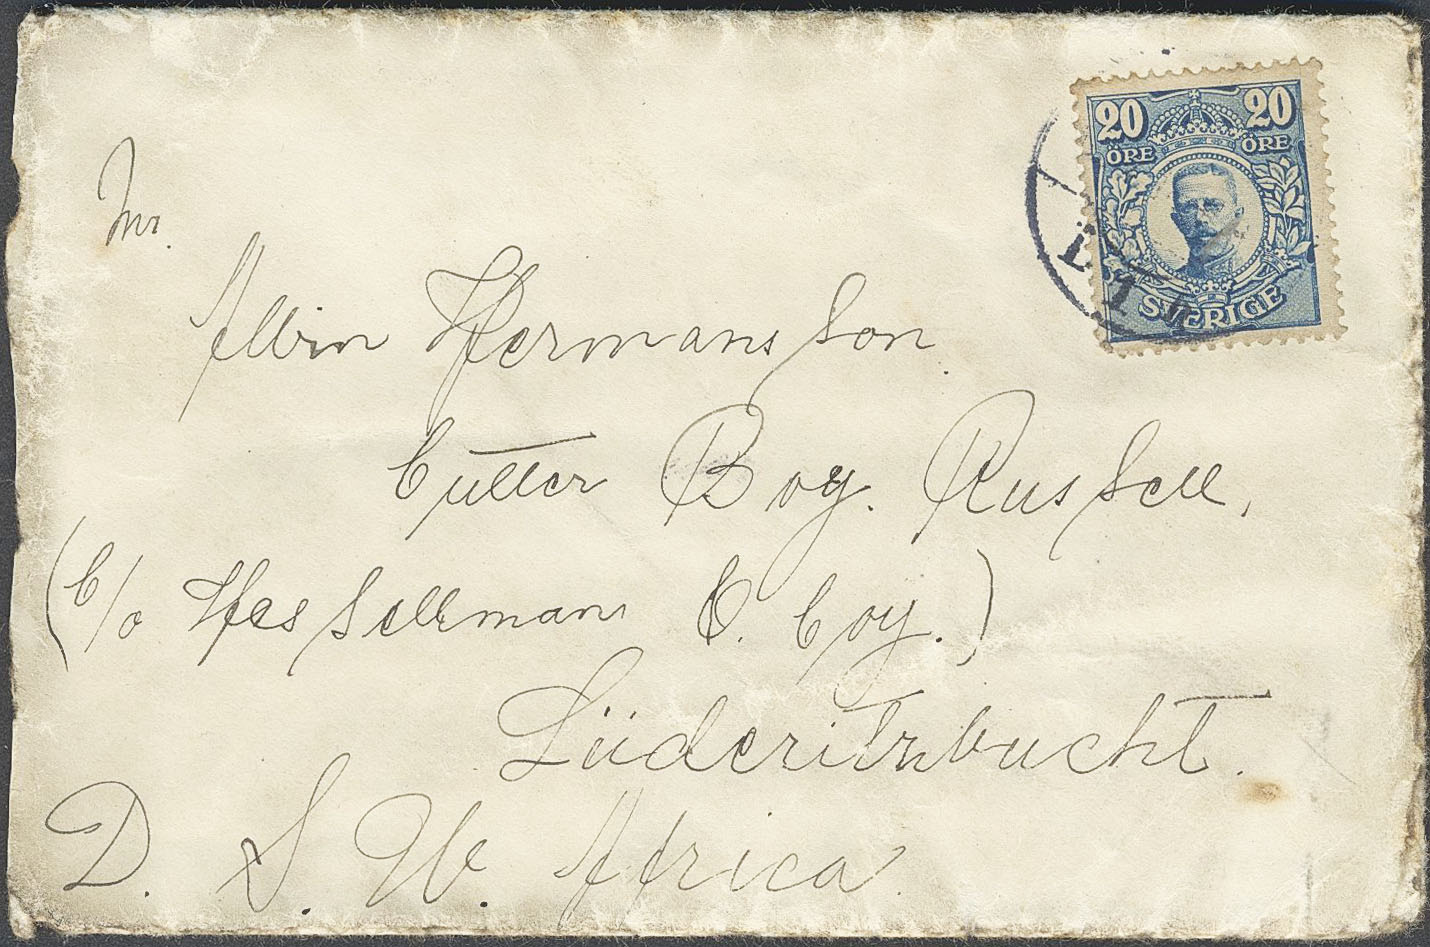 20 20
ÖRE ÖRE
SVERIGE
Mr.
Albin Hermansson
Cutter Boy. Russell,
(C/o Hesselman & Coy.)
Lüderitzbucht.
D. S. W. Africa.